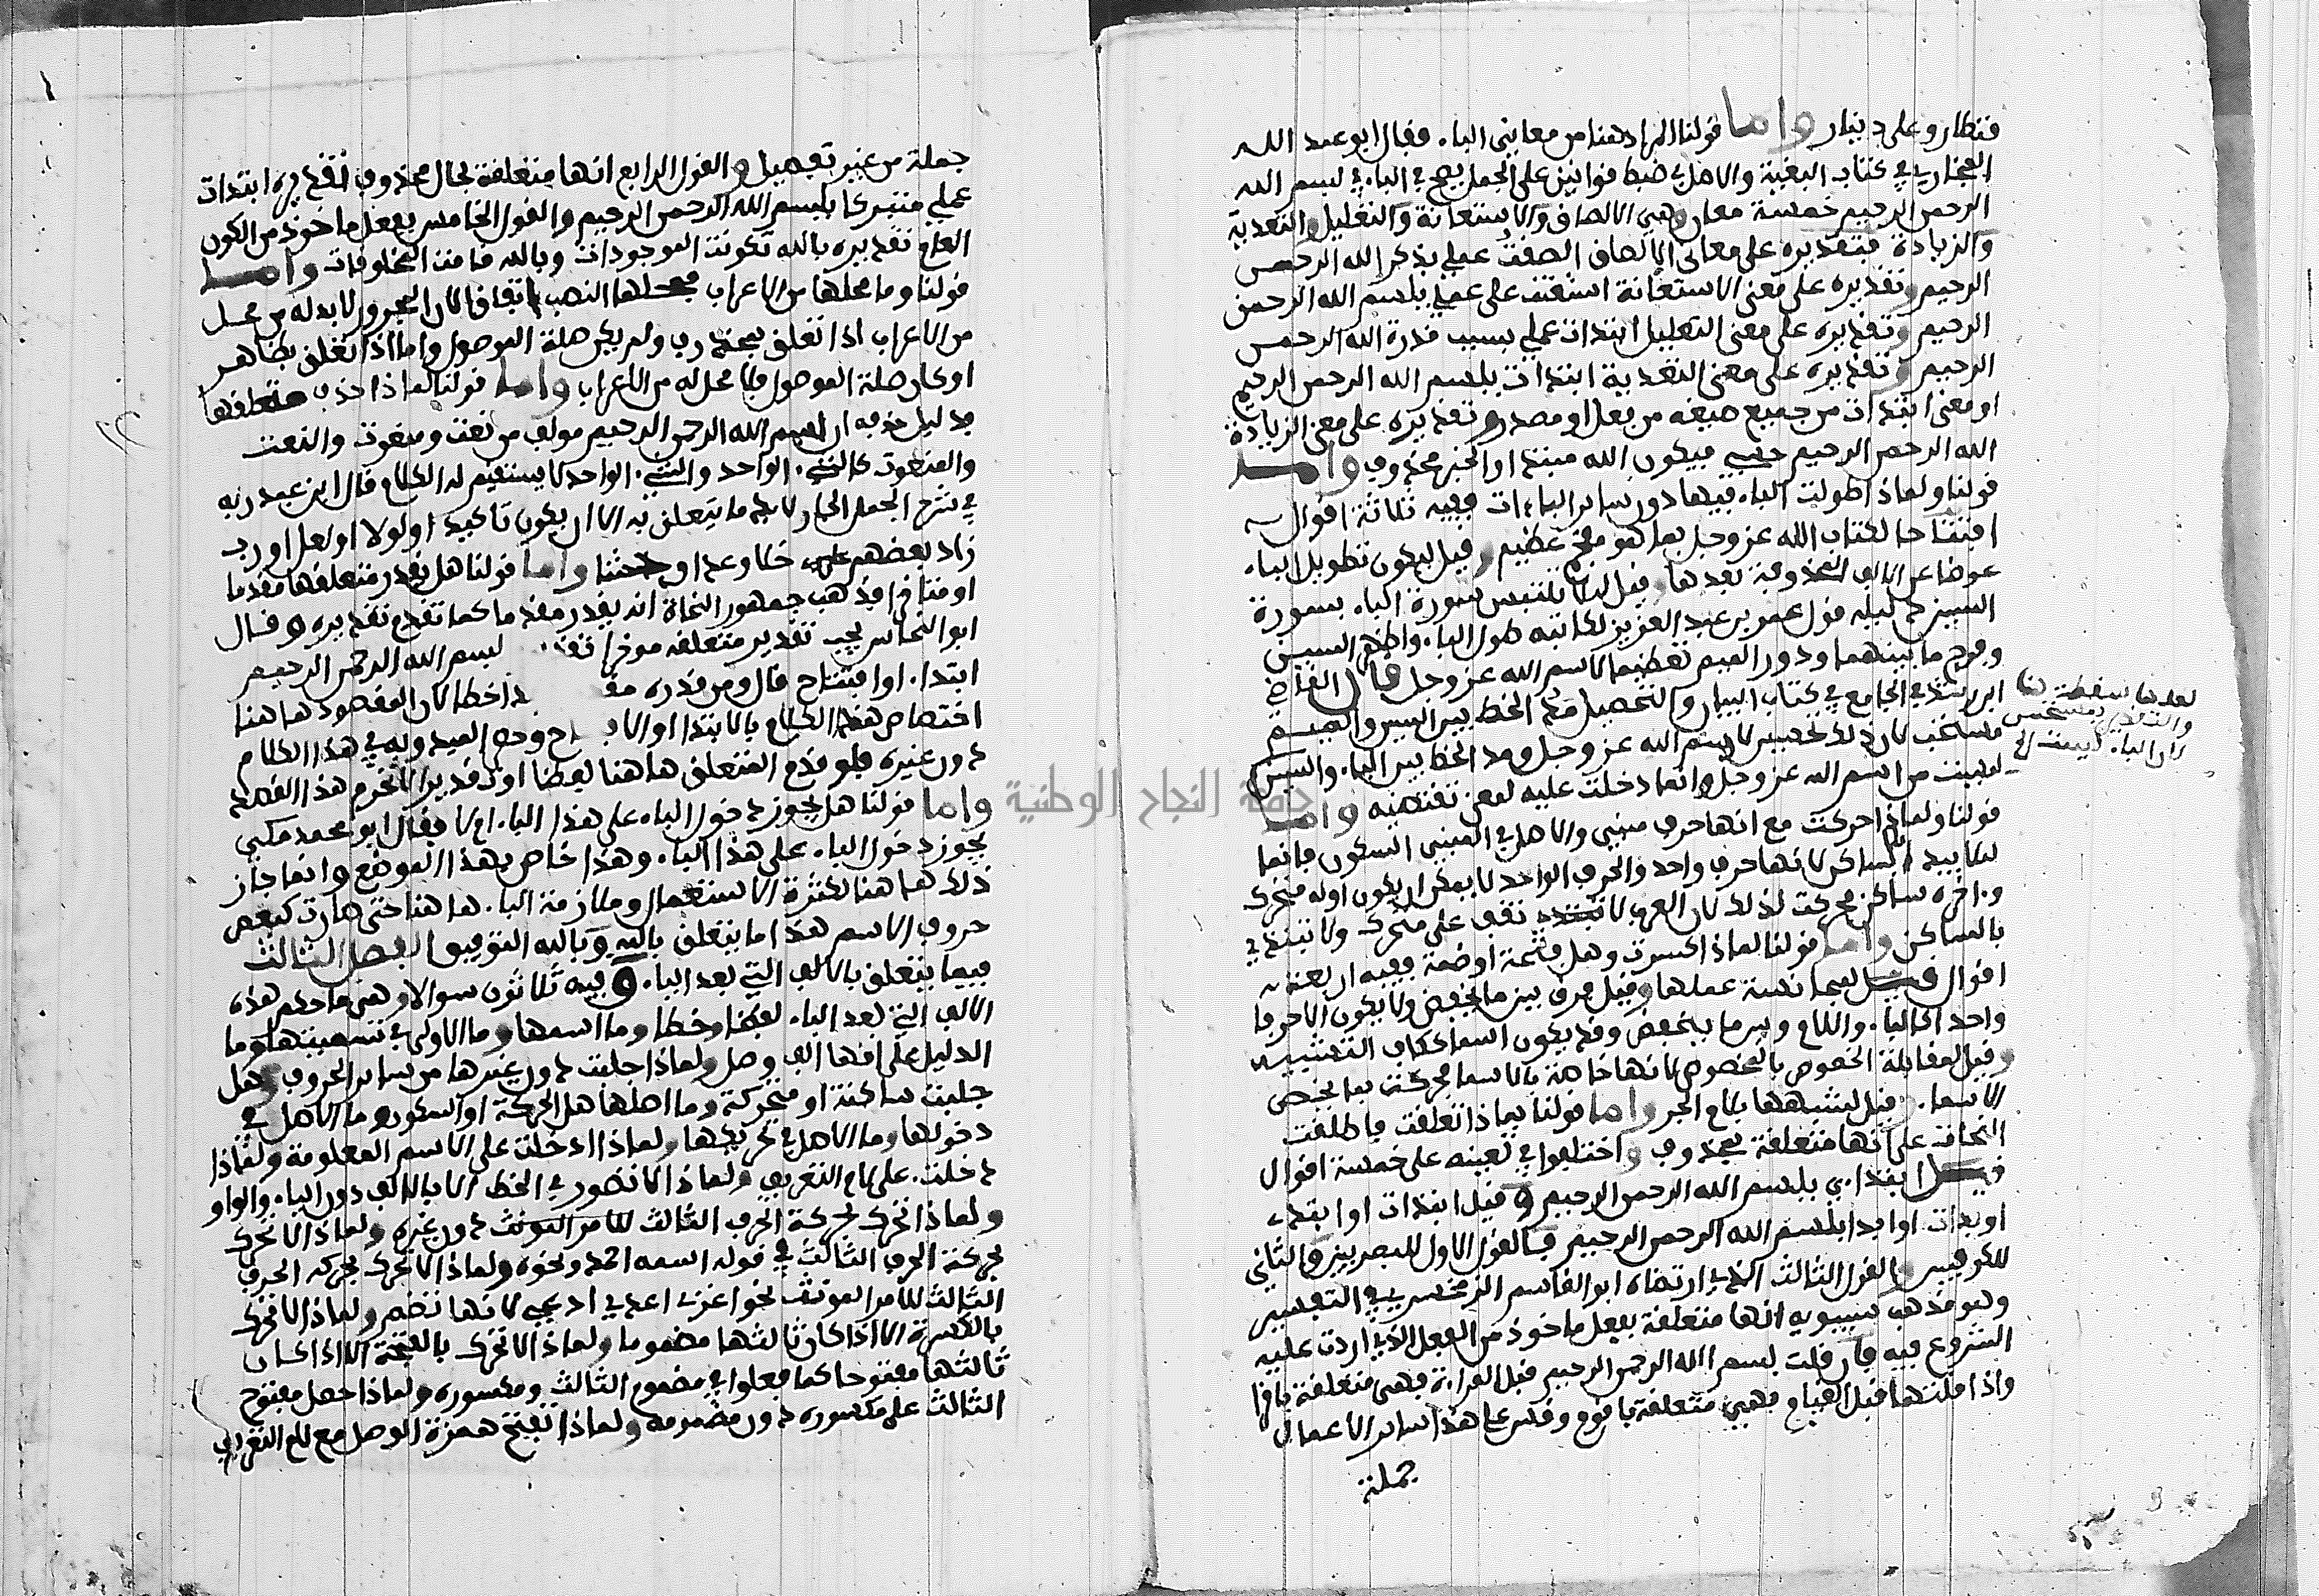 قنطار وعلى دينار واما قولنا المراد هنا من معاني الباء فقال ابو عبد الله
الفخاري في كتاب البغية والامل في ضبط قوانين على الجمل يصح في الباء في بسم الله
الرحمن الرحيم خمسة معان وهي الالصاق والاستعانة والتعليل والتعدية
والزيادة فتقديره على معانى الالصاق الصقت عملي بذكر الله الرحمن
الرحيم وتقديره على معنى الاستعانة استعنت على عملي ببسم الله الرحمن
الرحيم وتقديره على معنى التعليل ابتدات عملي بسبب قدرة الله الرحمن
الرحيم وتقديره على معنى التعدية ابتدات ببسم الله الرحمن الرحيم
او معنى ابتدات من جميع صيغه من فعل او مصدر وتقديره على معنى الزيادة
الله الرحمن الرحيم فيكون الله مبتدا والخبر محذوف واما
قولنا ولماذا طولت الباء فيها دون سائر الباءات ففيه ثلاثة اقوال
افتتاحا لكتاب الله عز وجل بما هو مفخم عظيم وقيل ليكون تطويل الباء
عوضا عن الالف المحذوفة بعدها وقيل ليلا يلتبس صورة الباء بصورة
السين دليله قول عمر بن عبد العزيز لكاتبه طول الباء واظهر السين
وفرج ما بينهما ودور الميم تعظيما لاسم الله عز وجل قال القاضي
ابن رشد في الجامع في كتاب البيان والتحصيل مد الخط بين السين والميم
لان ذلك تحسين لاسم الله عز وجل ومد الخط بين الباء والسين
ليست من اسم الله عز وجل وانما دخلت عليه لمعنى تقتضيه واما
قولنا ولماذا حركت مع انها حرف مبني والاصل في المبني السكون فانما
لانها حرف واحد والحرف الواحد لا يمكن ان يكون اوله متحرك
واخره ساكن فحركت لذلك لان العرب لا تقف على متحرك ولا تبتدي
بالساكن واما قولنا لماذا كسرت وهل فتحة او ضمة ففيه اربعة
اقوال قيل لمجانسة عملها وقيل فرق بين ما يخفض ولا يكون الا حرفا
واحد كالباء واللام وبين ما يخفض وقد يكون اسما ككاف التشبيه
وقيل لمقابلة الخصوص بالخصوص لانها خاصة بالاسما فحركت بما يختص
الاسما وقيل لتشبهها بلام الجر واما قولنا بماذا تعلقت فاطلقت
النحات على انها متعلقة بمحذوف واختلفوا في تعيينه على خمسة اقوال
قيل ابتداءي ببسم الله الرحمن الرحيم وقيل ابتدات او ابتدء
او بدات او ابدا ببسم الله الرحمن الرحيم فالقول الاول للبصريين والثاني
للكوفيين والقول الثالث الذي ارتضاه ابو القاسم الزمخشري في التفسير
وهو مذهب سيبويه انها متعلقة بفعل ماخوذ من الفعل الذي اردت عليه
الشروع فيه فان قلت بسم الله الرحمن الرحيم قبل القراءة فهي متعلقة باقرا
واذا قلتها قبل القيام فهي متعلقة باقوم وقس على هذا ساير الاعمال
جملة
لان الباء ليست الى
جملة من غير تفصيل والقول الرابع انها متعلقة بحال محذوف تقديره ابتدات
عملي متبركا ببسم الله الرحمن الرحيم والقول الخامس بفعل ماخوذ من الكون
العام تقديره بالله تكونت الموجودات وبالله قامت المخلوقات واما
قولنا وما محلها من الاعراب فمحلها النصب اتفاقا لان المجرور لا بد له من محل
من الاعراب اذا تعلق بمحذوف ولم يكن صلة الموصول واما اذا تعلق بظاهر
او كان صلة الموصول فلا محل له من الاعراب واما قولنا لماذا حذف متعلقها
ودليل حذفه ان بسم الله الرحمن الرحيم مولف من نعت ومنعوت والنعت
والمنعوت كالشيء الواحد والشيء الواحد لا يستقيم له الكلام قال ابن عبد ربه
في شرح الجمل الجار لابد ما يتعلق به الا ان يكون تاكيد او لولا او لعل او رب
زاد بعضهم خلا وعدا وحشا واما قولنا هل يقدر متعلقها مقدما
او متاخرا فذهب جمهور النحاة انه يقدر مقدما كما تقدم تقديره وقال
ابو النحاس يجب تقدير متعلقه موخرا بسم الله الرحمن الرحيم
ابتداء او افتتاح قال ومن قدره اخطا لان المقصود ها هنا
اختصاص هذا الكلام بالابتدا في هذا الكلام
دون غيره فلو قدم المتعلق ها هنا لفظا او تقديرا لانخرم هذا القصد
واما قولنا هل يجوز دخول الباء على هذا الباء ام لا فقال ابو محمد مكي
يجوز دخول الباء على هذا الباء وهذا خاص بهذا الموضع وانما جاز
ذلك ها هنا لكثرة الاستعمال وملازمة الباء ها هنا حتى صارت كبعض
حروف الاسم هذا ما يتعلق بالباء وبالله التوفيق الفصل الثالث
فيما يتعلق بالالف التي بعد الباء وفيه ثلاثون سوالا وهي ما حكم هذه
الالف التي بعد الباء لفظا وخطا وما اسمها وما الاولى في تسميتها وما
الدليل على انها الف وصل ولماذا جلبت دون غيرها من ساير الحروف وهل
جلبت ساكنة او متحركة وما اصلها هل الحركة او السكون وما الاصل في
دخولها وما الاصل في تحريكها ولماذا دخلت على الاسم المعلومة ولماذا
دخلت على لام التعريف ولماذا لا تصور في الخط الا بالالف دون الياء والواو
ولماذا تحرك بحركة الحرف الثالث للامر المونث دون غيره ولماذا لا تحرك
بحركة الحرف الثالث في قوله اسمه احمد ونحوه ولماذا لا تحرك بحركة الحرف
الثالث للامر المونث نحو اغزي اعدي ادعي لانها تضم ولماذا لا تحرك
بالكسرة الا اذا كان ثالثها مضموما ولماذا لا تحرك بالفتحة الا اذا كان
ثالثها مفتوحا كما فعلوا في مضموم الثالث ومكسوره ولماذا حمل مفتوح
الثالث على مكسوره دون مضمومه ولماذا تفتح همزة الوصل مع لام التعريف
جامعة النجاح الوطنية